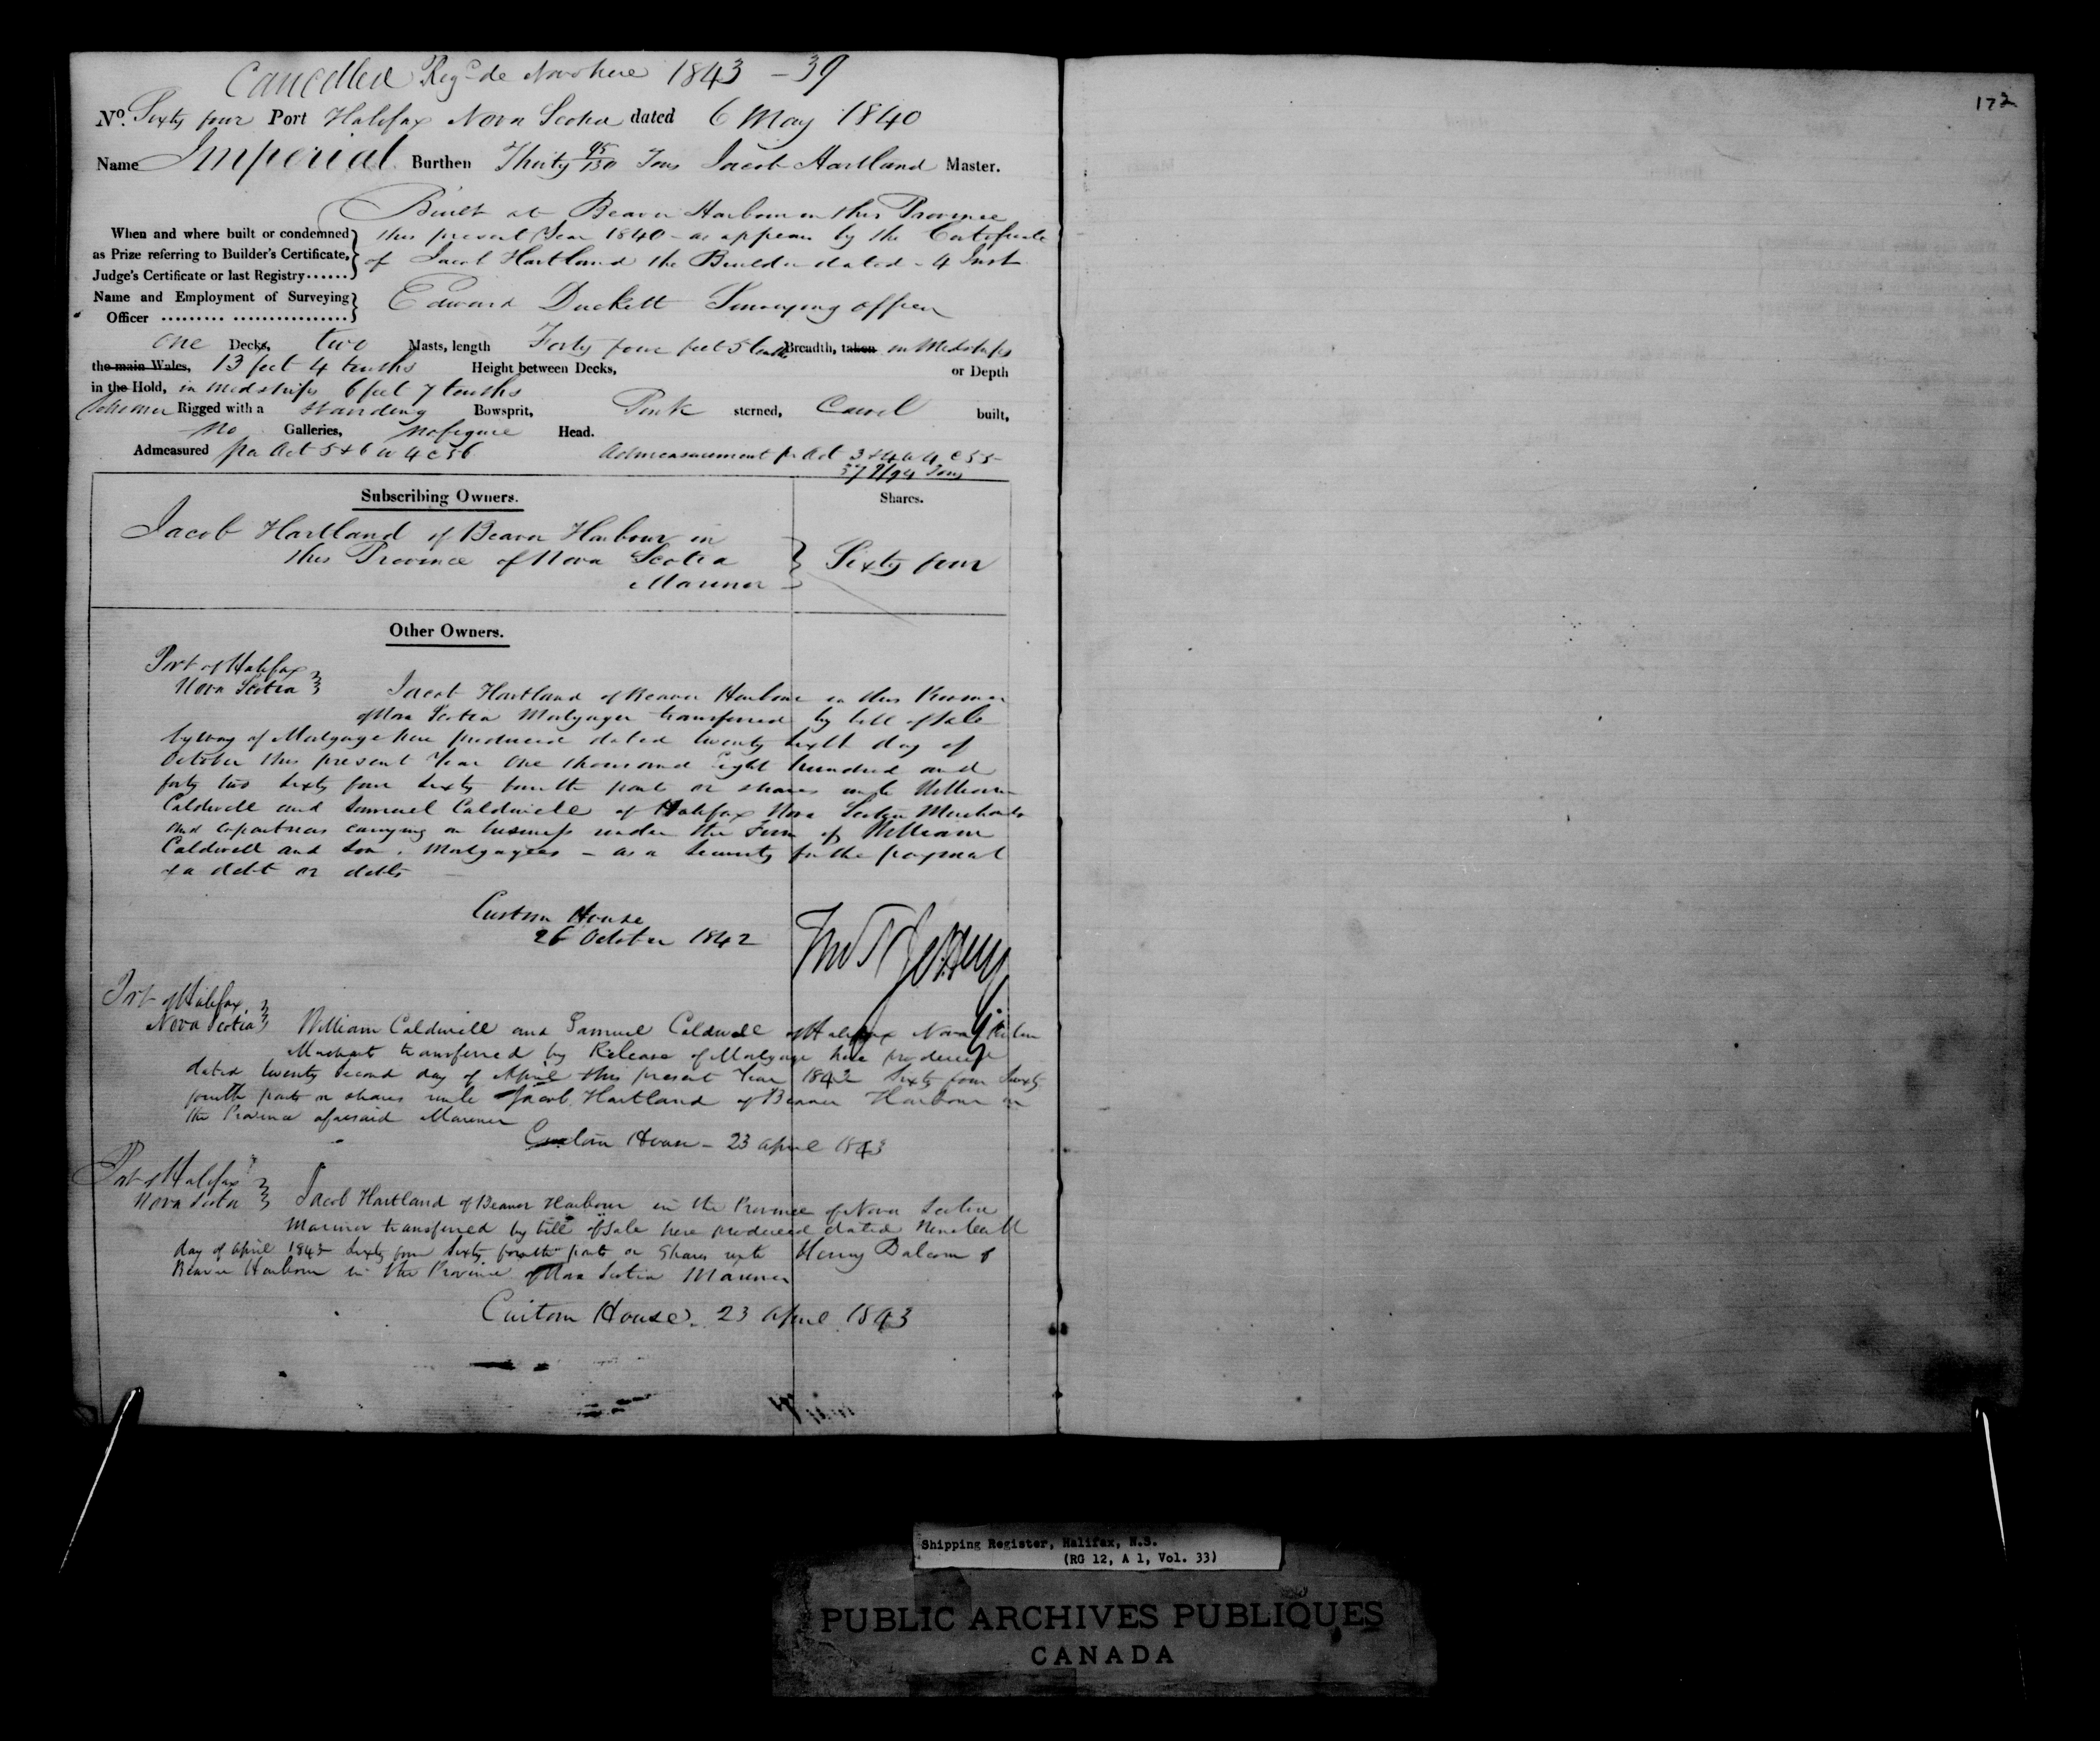 Cancelled Regd de Novo here 1843 - 39
No. Sixty four Port Halifax Nova Scotia dated 6 May 1840
Name Imperial Burthen Thirty 95/130 Tons Jacob Hartland Master.
Built at Beaver Harbour in this Province
When and where built or condemned this present Year 1840 - as appears by the Certificate
as Prize referring to Builder's Certificate, of Jacob Hartland the Builder dated - 4 Inst
Judge's Certificate or last Registry......
Name and Employment of Surveying Edward Duckett Surveying officer
Officer ......... ................
one Decks, two Masts, length Forty four feet 5 tenths Breadth, taken in Midships
the main Wales, 13 feet 4 tenths Height between Decks, or Depth
in the Hold, in midships 6 feet 7 tenths
Schooner Rigged with a standing Bowsprit, Pink sterned, Carvel built,
no Galleries, no figure Head.
Admeasured per Act 5 & 6 W 4 c 56 Admeasurement pr Act 3 & 4 W 4 C 55
37 9/94 Tons
Subscribing Owners. Shares.
Jacob Hartland of Beaver Harbour in
this Province of Nova Scotia Sixty four
Mariner
Other Owners.
Port of Halifax
Nova Scotia Jacob Hartland of Beaver Harbour in this Province
of Nova Scotia Mortgager transferred by bill of Sale
by way of Mortgage here produced dated twenty sixth day of
October this present Year One thousand Eight hundred and
forty two sixty four sixty fourth parts or shares unto William
Caldwell and Samuel Caldwell of Halifax Nova Scotia Merchants
and copartners carrying on business under the Firm of William
Caldwell and Son. Mortgagees - as a Security for the payment
of a debt or debts
Custom House
26 October 1842
Port of Halifax
Nova Scotia William Caldwell and Samuel Caldwell of Halifax Nova Scotia
Merchant transferred by Release of Mortgage here produced
dated twenty second day of April this present Year 1843 Sixty four Sixty
fourth parts or shares unto Jacob Hartland of Beaver Harbour in
the Province aforesaid Mariner
Custom House - 23 April 1843
Port of Halifax
Nova Scotia Jacob Hartland of Beaver Harbour in the Province of Nova Scotia
Mariner transferred by bill of Sale here produced dated Nineteenth
day of April 1843 Sixty four Sixty fourth parts or Shares unto Henry Balcom of
Beaver Harbour in the Province of Nova Scotia Mariner
Custom House. 23 April 1843
172
Shipping Register, Halifax, N.S.
(RG 12, A 1, Vol. 33)
PUBLIC ARCHIVES PUBLIQUES
CANADA